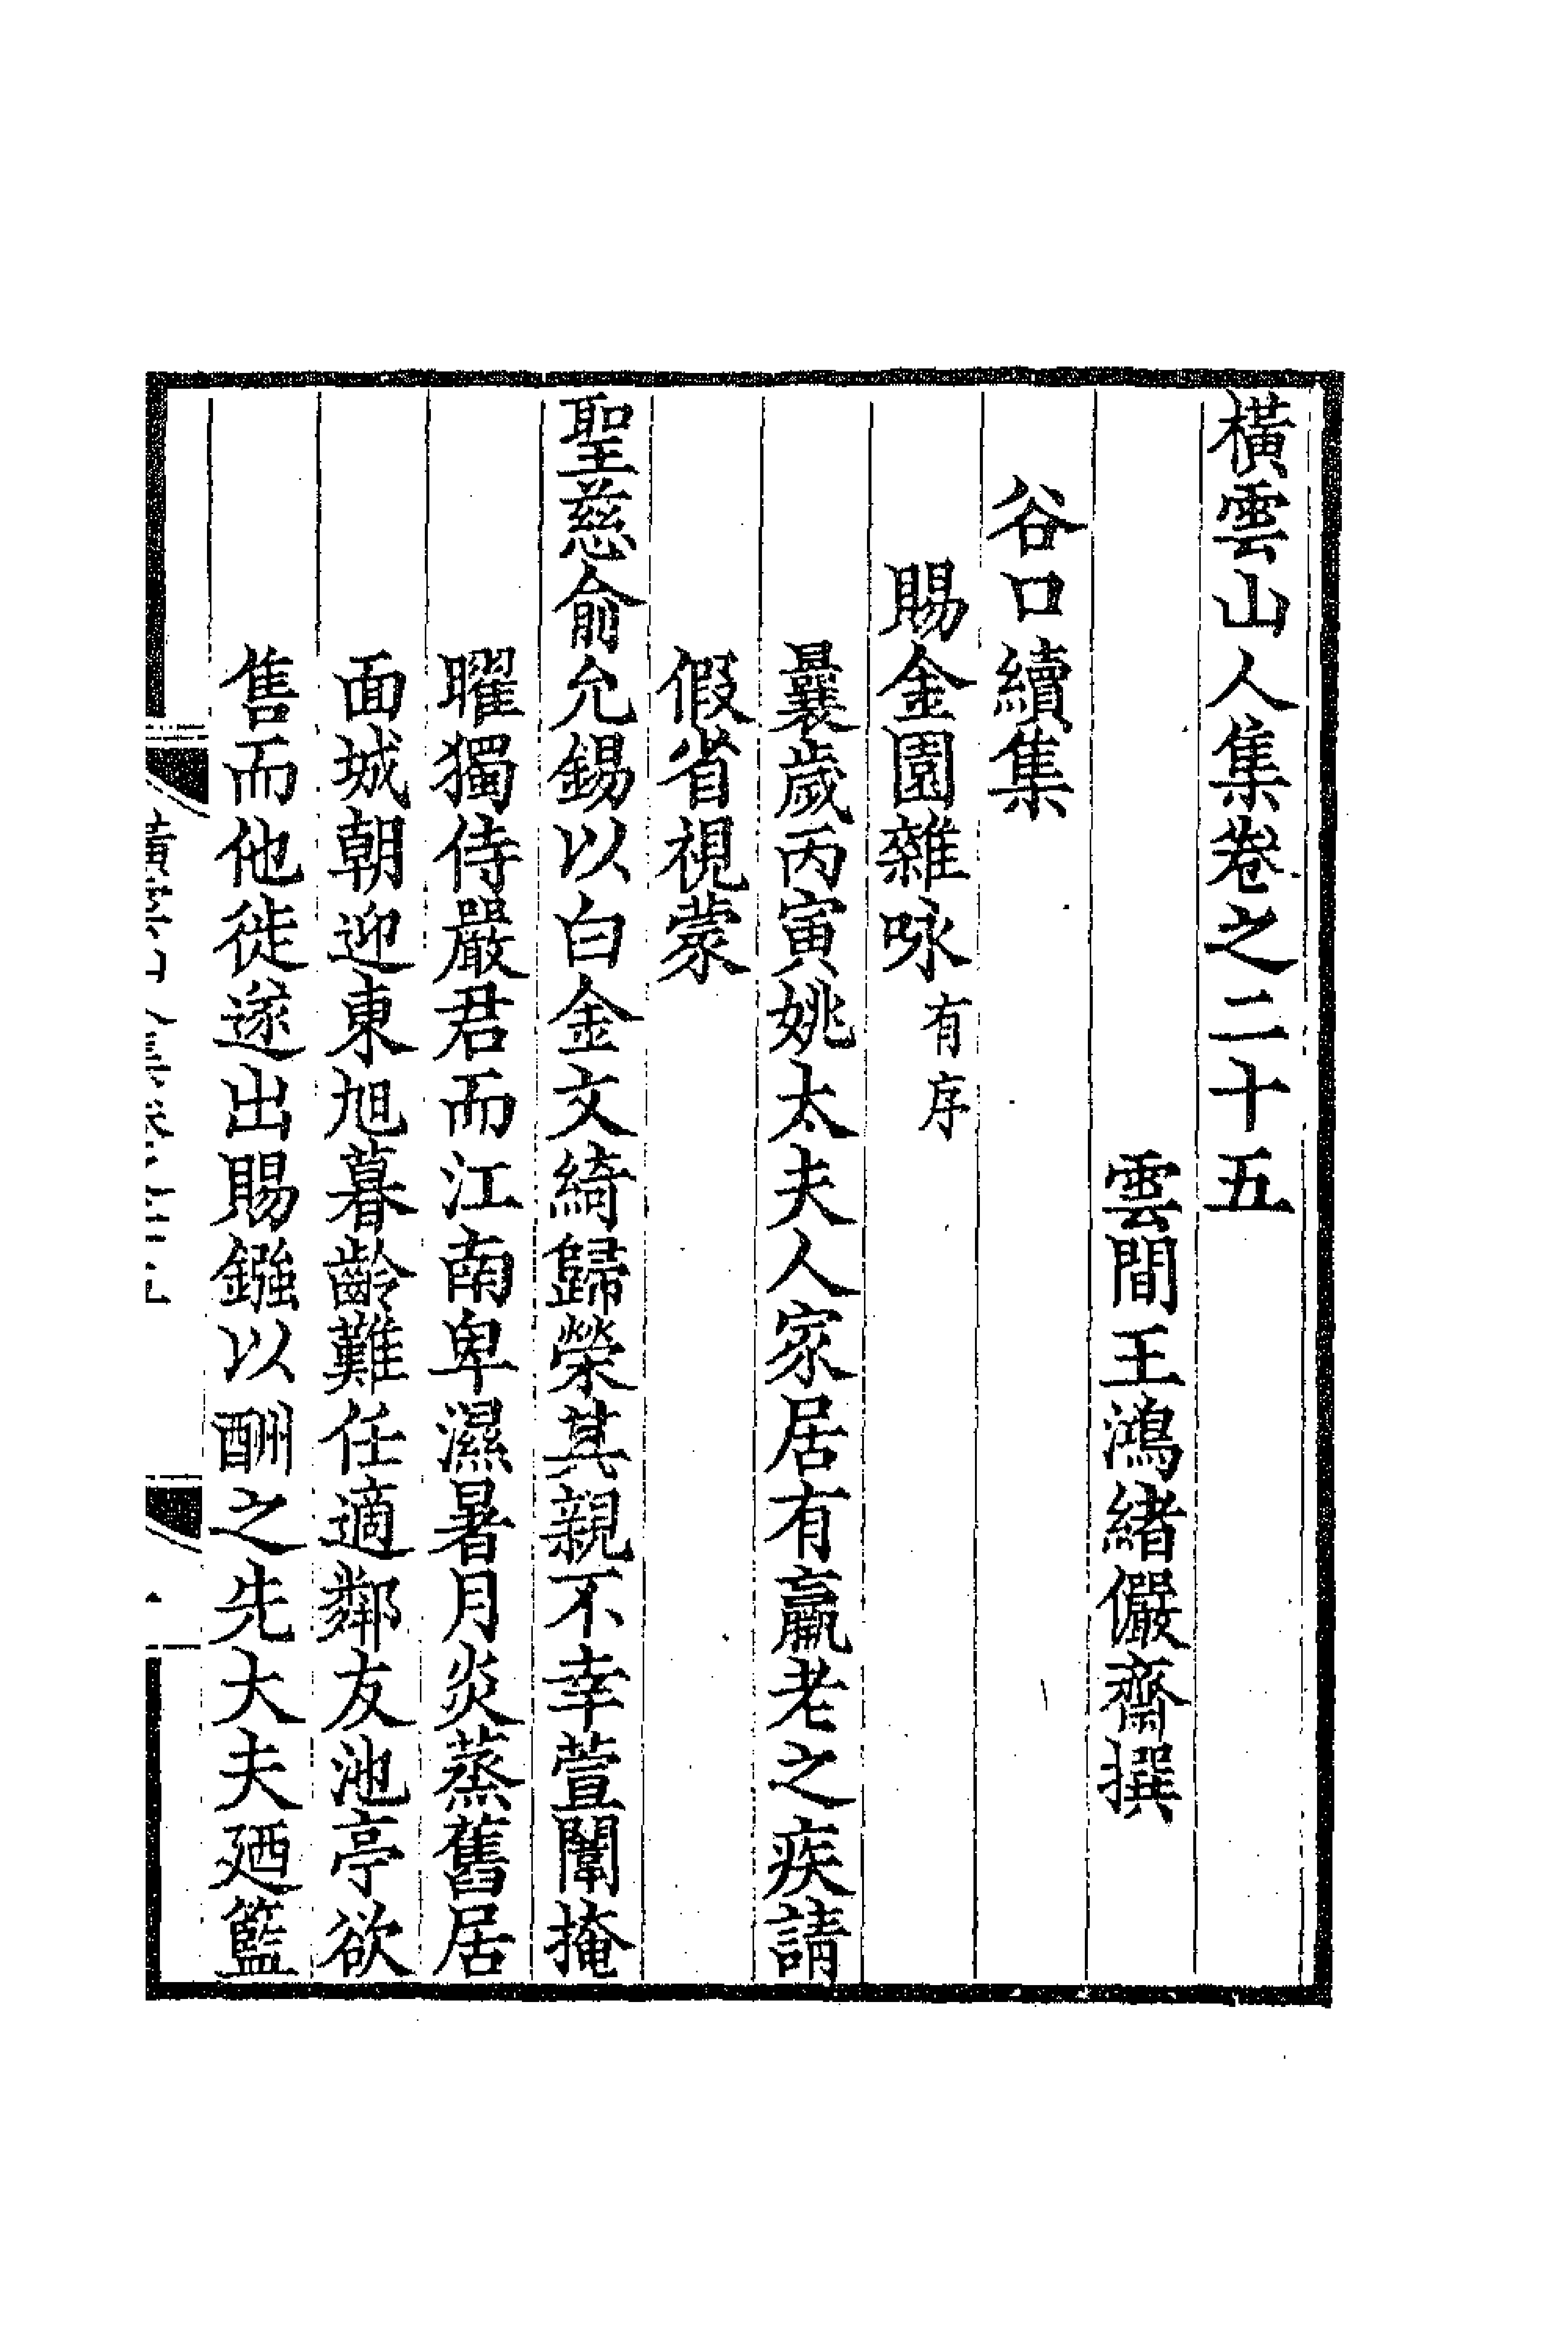 橫雲山人集卷之二十五
雲間王鴻緒儼齋撰
谷口續集
賜金園雜咏有序
曩歲丙寅姚太夫人家居有羸老之疾請
假省視蒙
聖慈俞允錫以白金文綺歸榮其親不幸萱闈掩
曜獨侍嚴君而江南卑濕暑月炎蒸舊居
面城朝迎東旭暮齡難任適鄰友池亭欲
售而他徙遂出賜鏹以酬之先大夫廼籃